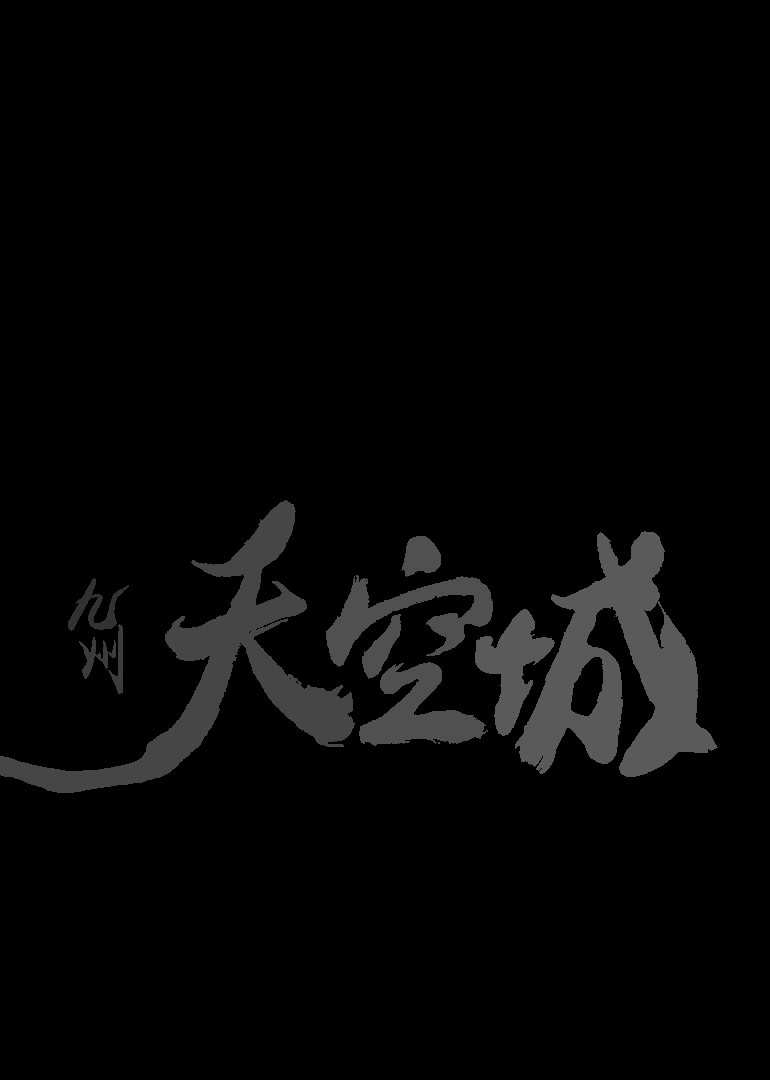 九州
天空城